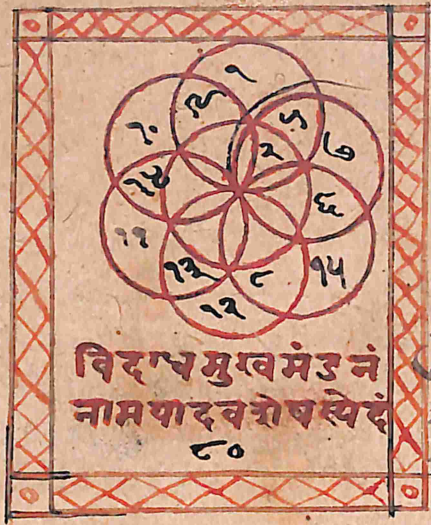 १
५
१० २ ७
१४ ६
११ १३ ८ १५
१२
विदग्धमुखमंडनं
नामयादवशेषस्येदं
८०